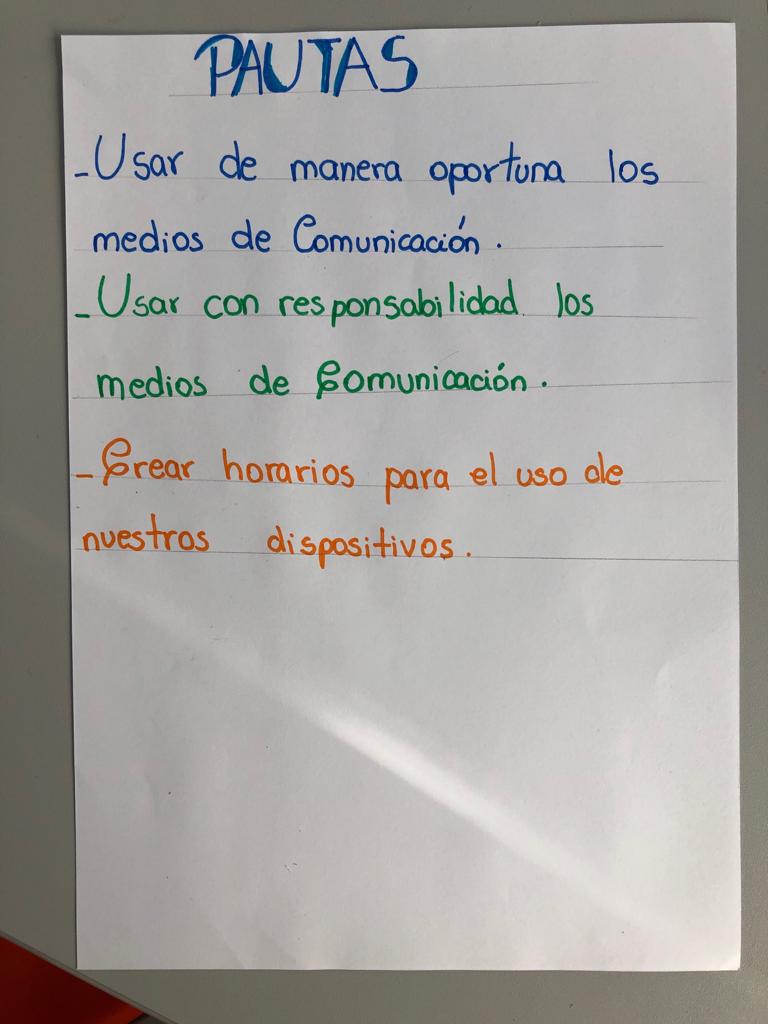 PAUTAS
-Usar de manera oportuna los
medios de Comunicación.
-Usar con responsabilidad los
medios de Comunicación.
-Crear horarios para el uso de
nuestros dispositivos.